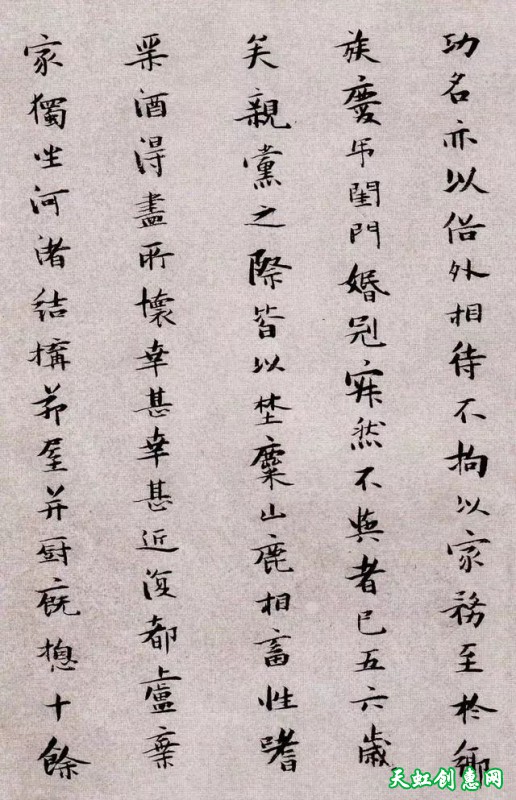 功名亦以俗外相待不拘以家務至於鄉
族慶弔閨門婚冠寂然不與者已五六歲
矣親黨之際皆以埜麋山鹿相畜性嗜
琹酒得盡所懷幸甚幸甚近復都盧棄
家獨坐河渚結構茆屋并厨廐揔十餘
天虹创惠网